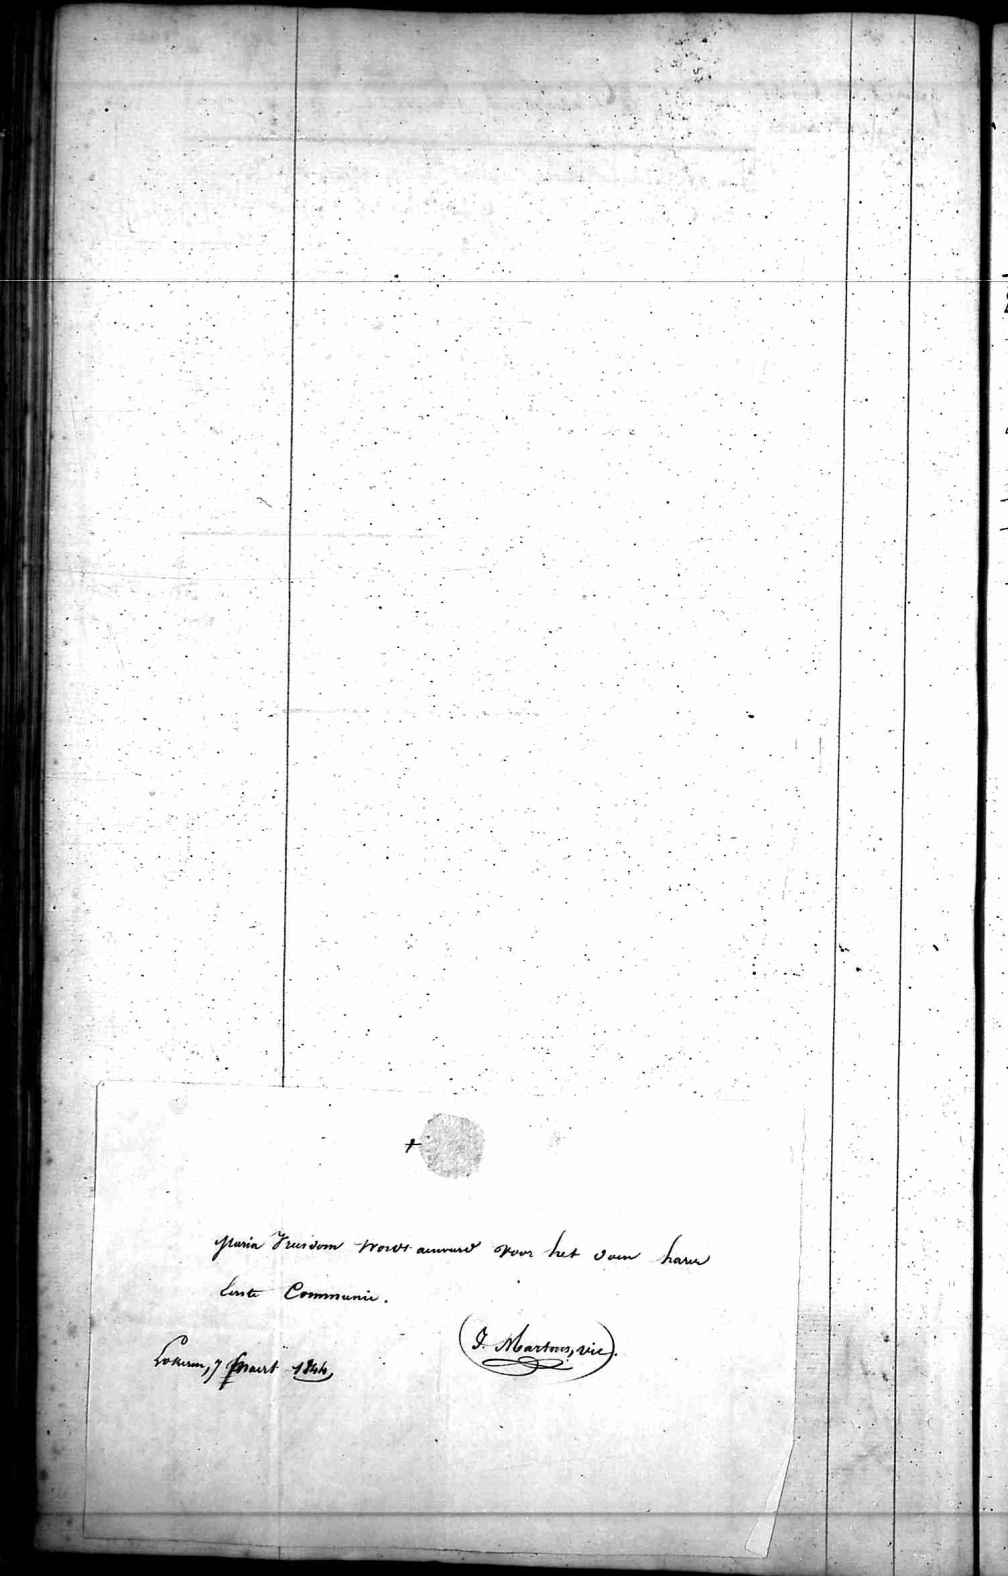 +
Maria Truidom word aenveerd voor het doen harer
Eerste Communie.
(J. Martens, vic).
Lokeren, 7 Maert 1844